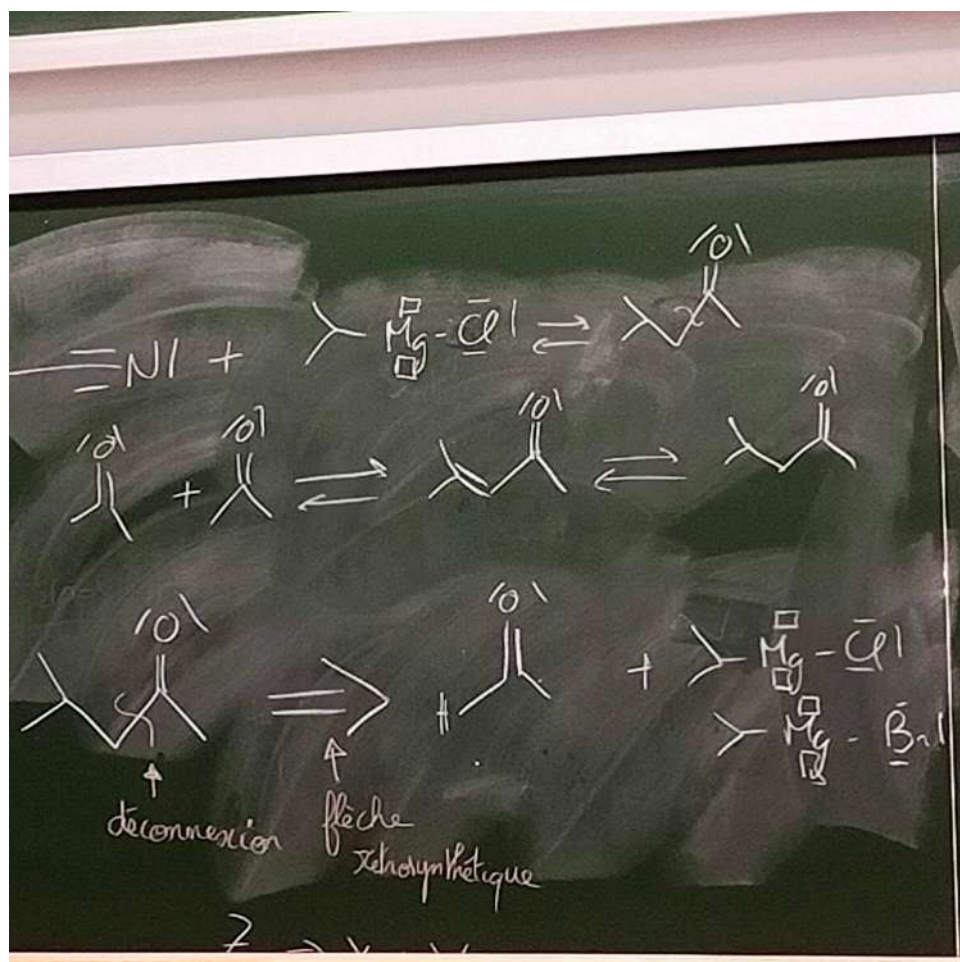 ≡N| + Mg-Cl| ⇌ |O|
|O| + |O| ⇌ |O| ⇌ |O|
|O| ⇒ H |O| + Mg-Cl|
Mg-Br|
déconnexion flèche
rétrosynthétique